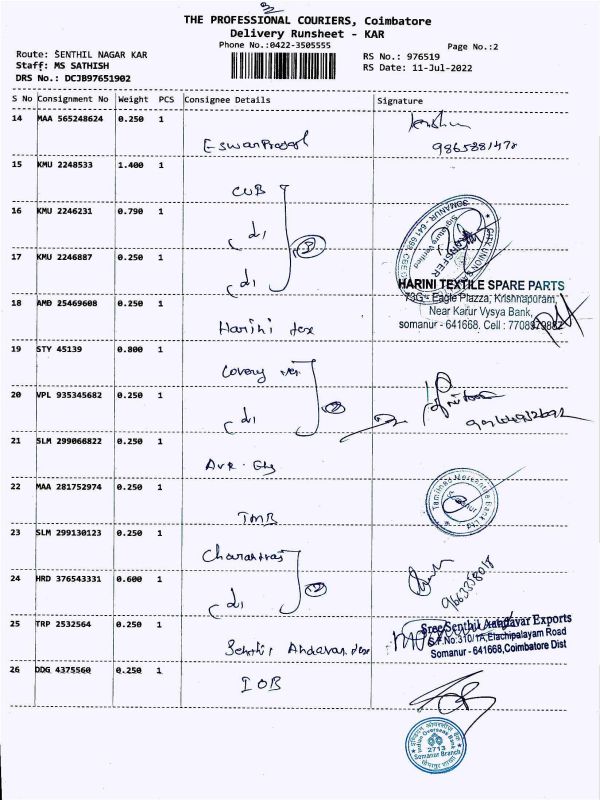 THE PROFESSIONAL COURIERS, Coimbatore
Delivery Runsheet - KAR
Phone No.:0422-3505555
Page No.:2
Route: SENTHIL NAGAR KAR
RS No.: 976519
Staff: MS SATHISH
RS Date: 11-Jul-2022
DRS No.: DCJB97651902
S No Consignment No Weight PCS Consignee Details Signature
14 MAA 565248624 0.250 1
15 KMU 2248533 1.400 1
CUB
16 KMU 2246231 0.790 1
17 KMU 2246887 0.250 1
HARINI TEXTILE SPARE PARTS
73G - Eagle Plazza, Krishnapuram,
Near Karur Vysya Bank,
somanur - 641668, Cell :
18 AMD 25469608 0.250 1
Harini tex
19 STY 45139 0.800 1
20 VPL 935345682 0.250 1
21 SLM 299066822 0.250 1
22 MAA 281752974 0.250 1
TMB
Tamilnad Mercantile Bank
23 SLM 299130123 0.250 1
24 HRD 376543331 0.600 1
25 TRP 2532564 0.250 1
Sree Senthil Aandavar Exports
S.F.No:310/1A, Elachipalayam Road
Somanur - 641668, Coimbatore Dist
Senthil Andavar tex
26 DDG 4375560 0.250 1
IOB
Indian Overseas Bank
2713
Somanur Branch